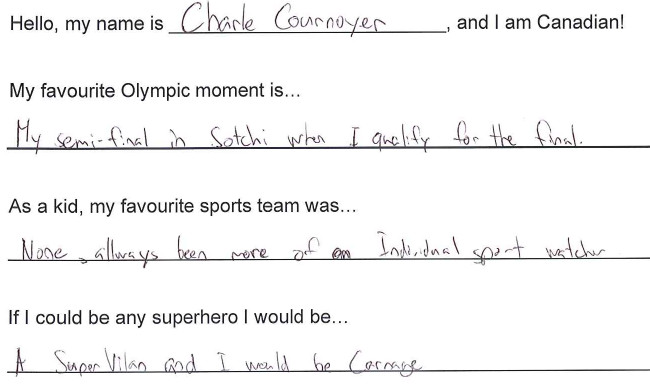 Hello, my name is Charle Cournoyer, and I am Canadian!
My favourite Olympic moment is...
My semi-final in Sotchi when I qualify for the final.
As a kid, my favourite sports team was...
None, allways been more of an Individual sport watcher
If I could be any superhero I would be...
A Super Vilan and I would be Carnage